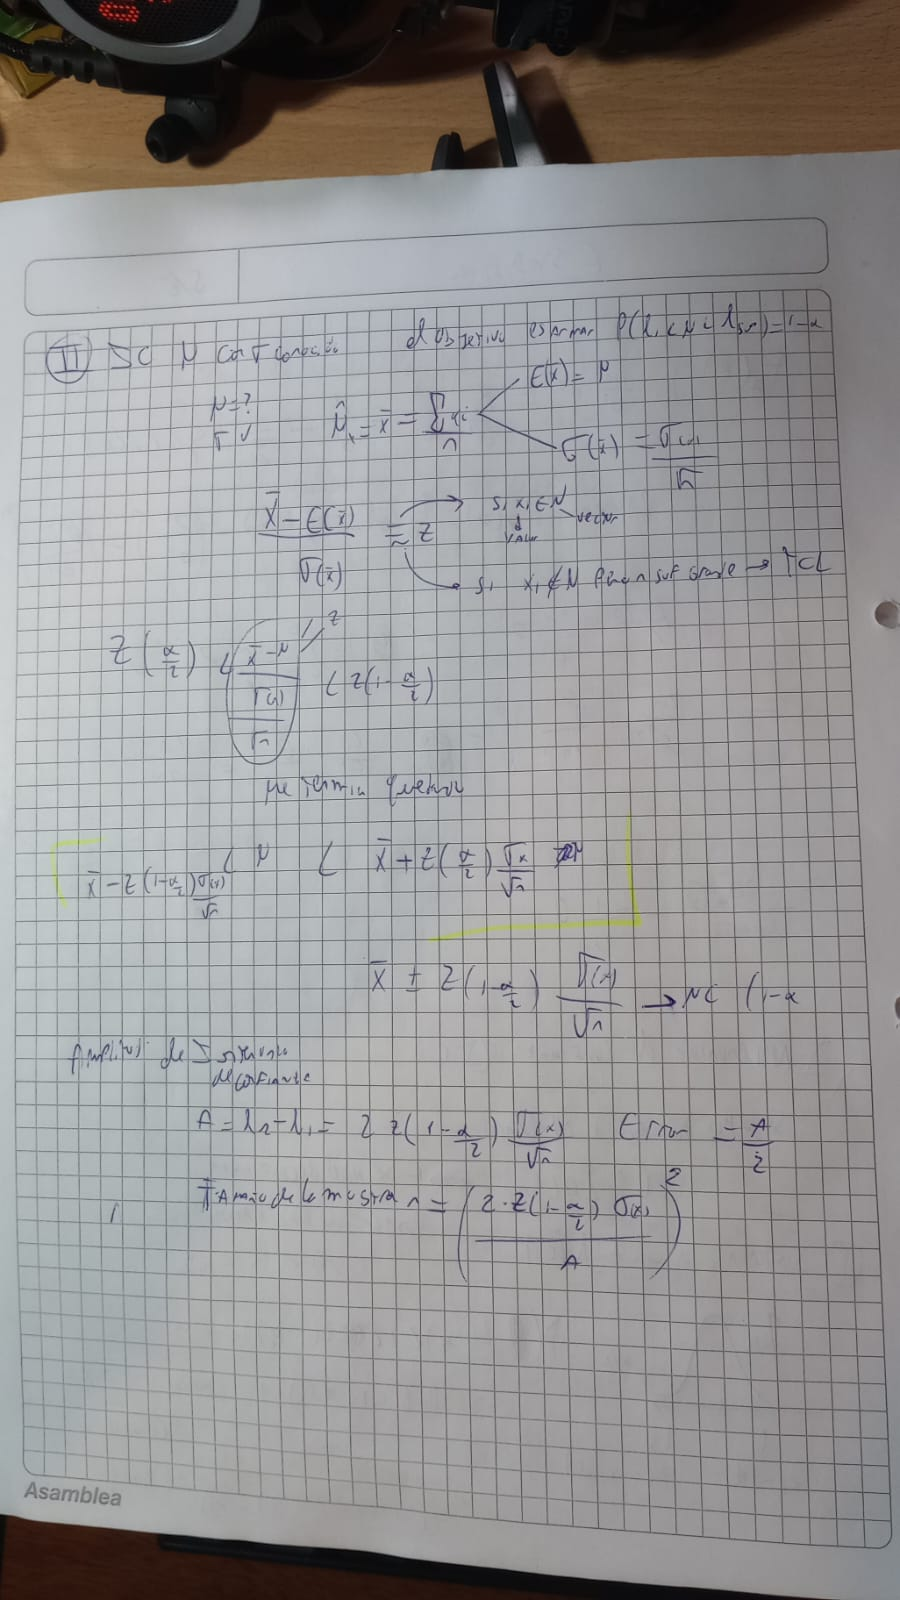 II IC μ con σ conocido el objetivo estimar P(l₁ < μ < l sup) = 1-α
μ = ?
σ ✓
μ̂ₓ = x̄ = Σxᵢ / n
E(x̄) = μ
σ(x̄) = σ(x) / √n
x̄ - E(x̄) / σ(x̄) ≅ Z
si xᵢ ∈ N
si xᵢ ∉ N para n suf grande → TCL
Z(α/2) < x̄ - μ / σ(x) / √n < Z(1-α/2)
Z
x̄ - Z(1-α/2) σ(x)/√n < μ < x̄ + Z(α/2) σx/√n
x̄ ± Z(1-α/2) σ(x)/√n → NC (1-α
Amplitud de Intervalo
de confianza
A = l₂ - l₁ = 2 Z(1-α/2) σ(x)/√n Error = A/2
Tamaño de la muestra n = (2·Z(1-α/2) σ(x) / A)²
Asamblea